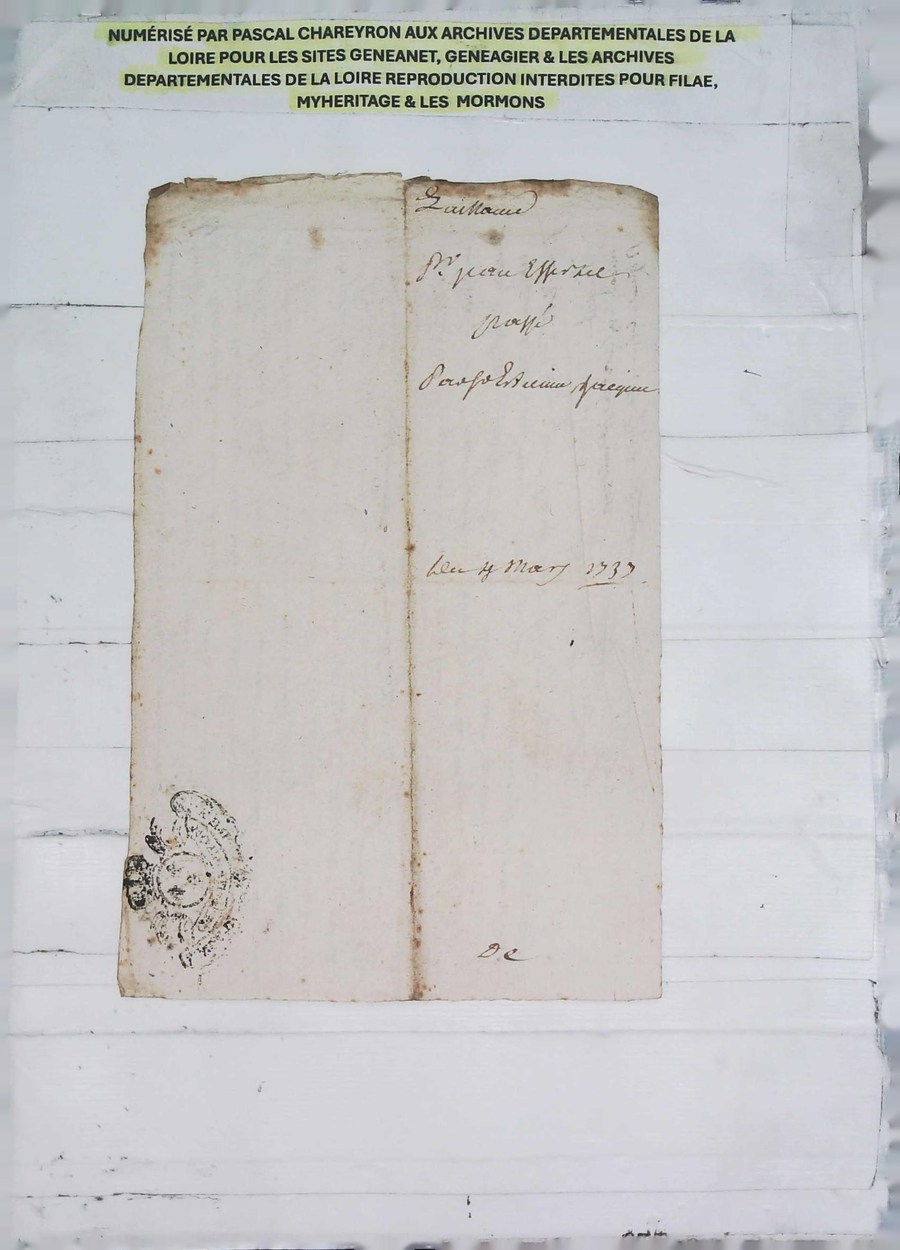 NUMÉRISÉ PAR PASCAL CHAREYRON AUX ARCHIVES DEPARTEMENTALES DE LA
LOIRE POUR LES SITES GENEANET, GENEAGIER & LES ARCHIVES
DEPARTEMENTALES DE LA LOIRE REPRODUCTION INTERDITES POUR FILAE,
MYHERITAGE & LES MORMONS
Pr jean
passé
Par
Du 4 Mars 1737